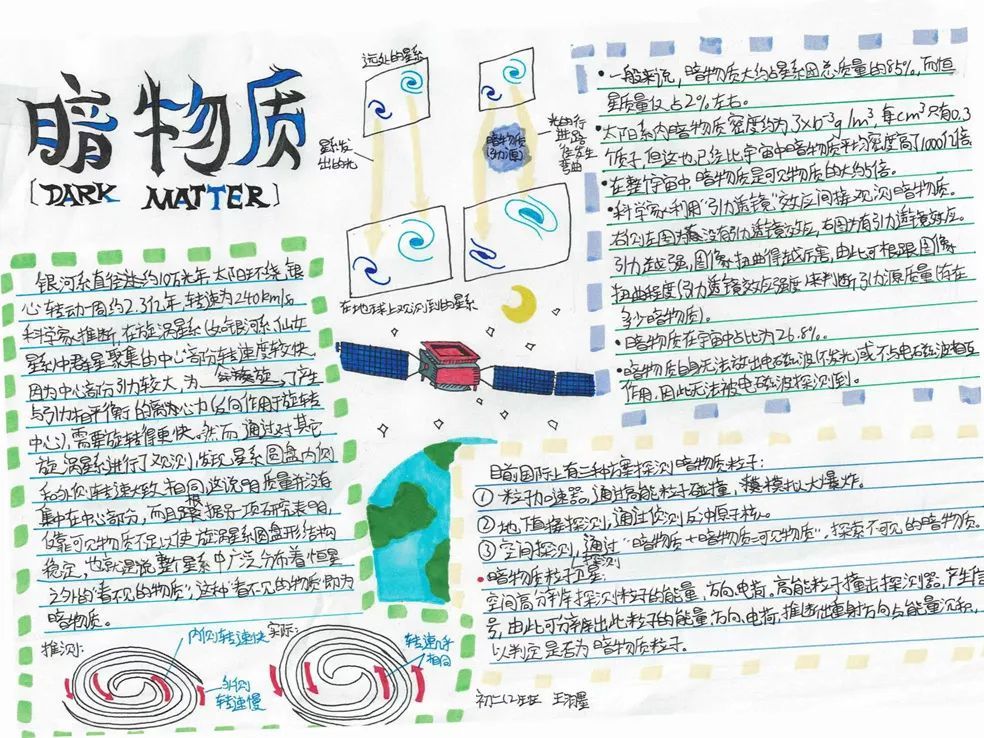 暗物质
[DARK MATTER]
远处的星系
星系发
出的光
暗物质
(引力源)
光的行
进路
径发生
弯曲
在地球上观测到的星系
银河系直径达约10万光年,太阳环绕银
心转动一周约2.3亿年,转速为240km/s
科学家推断,在旋涡星系(如银河系、仙女
星系)中群星聚集的中心部份转速度较快.
因为中心部份引力较大,为
了产生
与引力相平衡的离心力(反向作用于旋转
中心),需要旋转得更快.然而通过对其它
旋涡星系进行了观测,发现星系圆盘内侧
和外侧转速大致相同,这说明质量形没有
集中在中心部分,而且根据另一项研究表明,
仅靠可见物质不足以使旋涡星系圆盘形结构
稳定,也就是说,整个星系中广泛分布着恒星
之外的“看不见的物质”,这种“看不见的物质”即为
暗物质。
推测:
内侧转速快
外侧
转速慢
实际:
转速几乎
相同
•一般来说,暗物质大约占星系团总质量的85%,而恒
星质量仅占2%左右.
•太阳系内暗物质密度约为3×10⁻³g/m³,每cm³只有0.3
质子.但这也已经比宇宙中暗物质平均密度高了1000亿倍
•在整个宇宙中,暗物质是可见物质的大约5倍。
•科学家利用“引力透镜”效应间接观测暗物质.
右侧左图为没有引力透镜效应,右图为有引力透镜效应。
引力越强,图像扭曲得越厉害,由此可根据图像
扭曲程度(引力透镜效应强度)来判断引力源质量(存在
多少暗物质)。
•暗物质在宇宙中占比为26.8%.
•暗物质自身无法放出电磁波(不发光)或不与电磁波相互
作用,因此无法被电磁波探测到.
目前国际上有三种方案探测暗物质粒子:
①粒子加速器.通过高能粒子碰撞,模拟大爆炸.
②地下直接探测,通过侦测反冲原子核.
③空间探测,通过探测“暗物质+暗物质=可见物质”,探索不可见的暗物质.
•暗物质粒子卫星:
空间高分辨探测粒子的能量、方向、电荷.高能粒子撞击探测器,产生信
号,由此可分辨出此粒子的能量、方向、电荷,推选出重射方向与能量沉积,
以判定是否为暗物质粒子.
初二(2)班 王